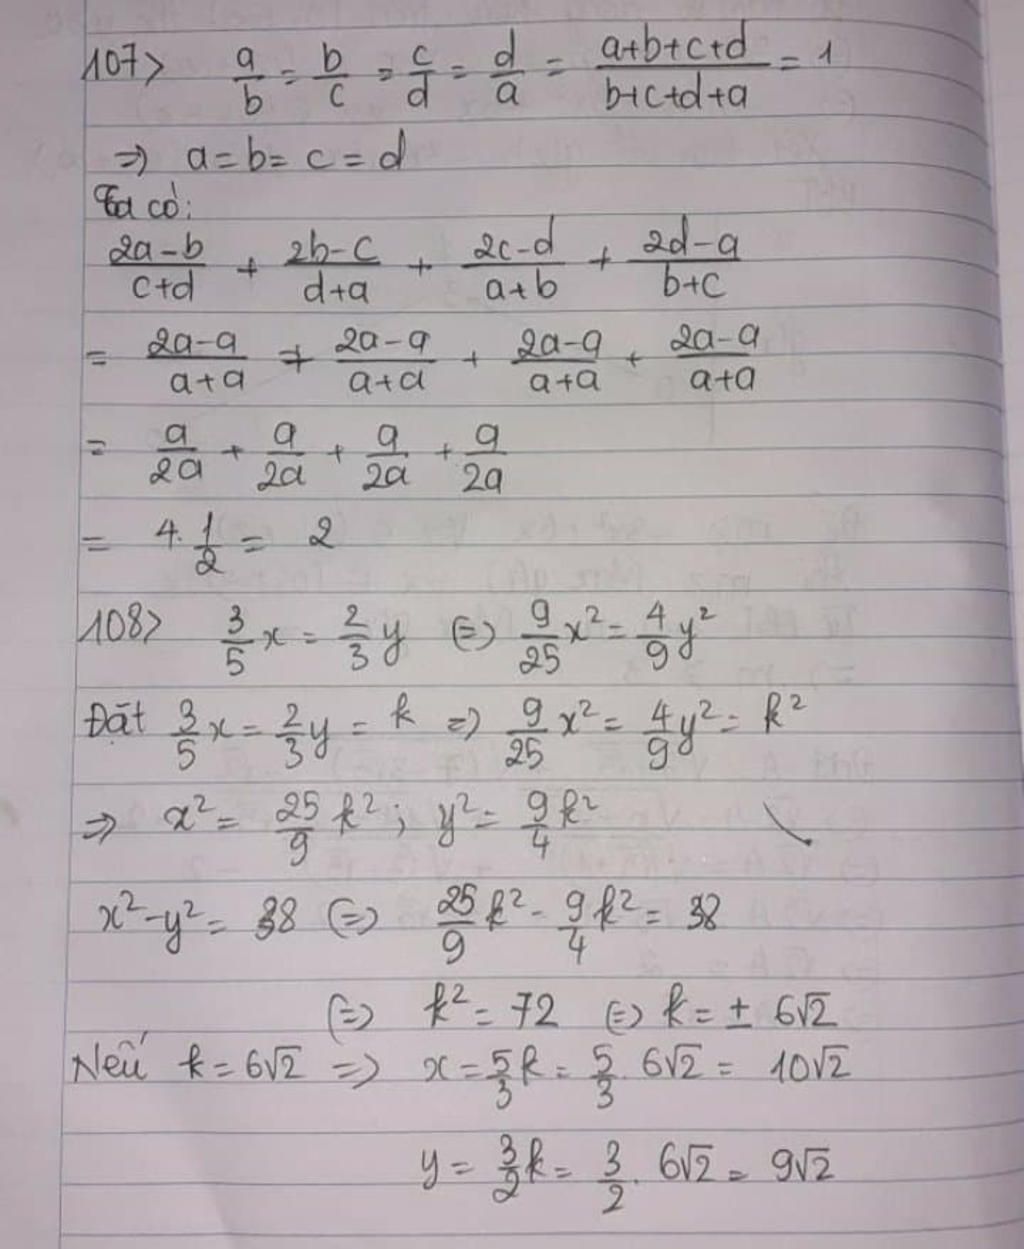 107> a/b = b/c = c/d = d/a = (a+b+c+d)/(b+c+d+a) = 1
=> a = b = c = d
Ta có:
(2a-b)/(c+d) + (2b-c)/(d+a) + (2c-d)/(a+b) + (2d-a)/(b+c)
= (2a-a)/(a+a) + (2a-a)/(a+a) + (2a-a)/(a+a) + (2a-a)/(a+a)
= a/2a + a/2a + a/2a + a/2a
= 4. 1/2 = 2
108> 3/5 x = 2/3 y (=) 9/25 x² = 4/9 y²
Đặt 3/5 x = 2/3 y = k => 9/25 x² = 4/9 y² = k²
=> x² = 25/9 k² ; y² = 9/4 k²
x² - y² = 38 (=) 25/9 k² - 9/4 k² = 38
(=) k² = 72 (=) k = ± 6√2
Nếu k = 6√2 => x = 5/3 k = 5/3 . 6√2 = 10√2
y = 3/2 k = 3/2 . 6√2 = 9√2